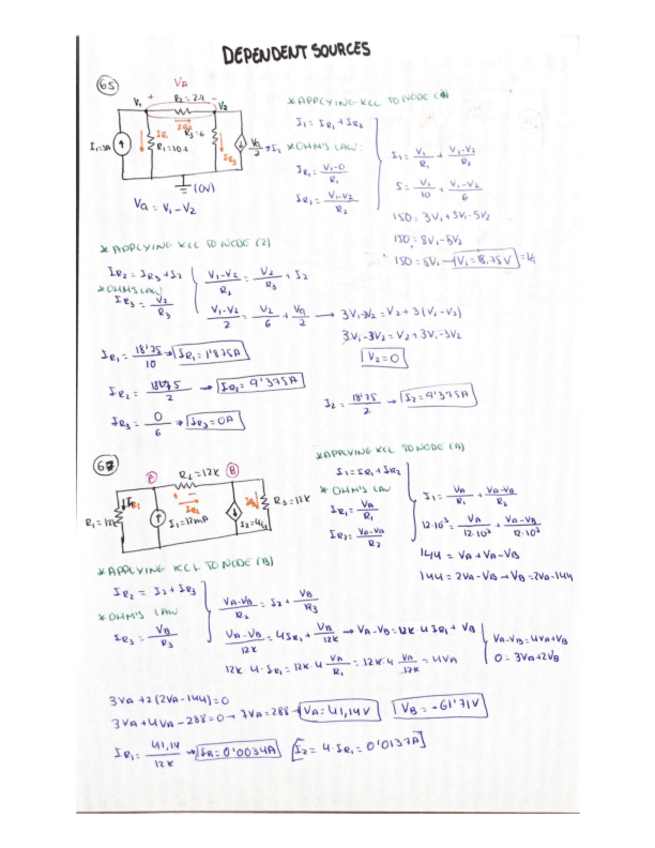 DEPENDENT SOURCES
65
VA
+ R2=2Ω -
V1 V2
IR2
R3=6
I1=5A IR1 R1=10Ω IR3 Va/2 → I2
(0V)
Va = V1-V2
* APPLYING KCL TO NODE (1)
I1 = IR1 + IR2
* OHM'S LAW:
IR1 = V1-0/R1
IR2 = V1-V2/R2
I1 = V1/R1 + V1-V2/R2
5 = V1/10 + V1-V2/6
150 = 3V1+5V1-5V2
150 = 8V1-5V2
150 = 8V1 → V1 = 18.75V
* APPLYING KCL TO NODE (2)
IR2 = IR3 + I2
* OHM'S LAW
IR3 = V2/R3
V1-V2/R2 = V2/R3 + I2
V1-V2/2 = V2/6 + Va/2 → 3V1-3V2 = V2+3(V1-V2)
3V1-3V2 = V2+3V1-3V2
V2=0
IR1 = 18'75/10 → IR1 = 1'875A
IR2 = 18'75/2 → IR2 = 9'375A
IR3 = 0/6 → IR3 = 0A
I2 = 18'75/2 → I2 = 9'375A
67
R2=12K B
+ -
IR2
R1=12K IR1 I1=12mA I2=4IR1 R3=12K
* APPLYING KCL TO NODE (A)
I1 = IR1 + IR2
* OHM'S LAW
IR1 = VA/R1
IR2 = VA-VB/R2
I1 = VA/R1 + VA-VB/R2
12·10³ = VA/12·10³ + VA-VB/12·10³
144 = VA + VA-VB
144 = 2VA-VB → VB = 2VA-144
* APPLYING KCL TO NODE (B)
IR2 = I2 + IR3
* OHM'S LAW
IR3 = VB/R3
VA-VB/R2 = I2 + VB/R3
VA-VB/12K = 4IR1 + VB/12K → VA-VB = 12K·4IR1 + VB
12K·4·IR1 = 12K·4 VA/R1 = 12K·4 VA/12K = 4VA
VA-VB = 4VA+VB
0 = 3VA+2VB
3VA+2(2VA-144)=0
3VA+4VA-288=0 → 7VA=288 → VA=41,14V VB=-61'71V
IR1 = 41,14/12K → IR1=0'0034A [I2=4·IR1=0'0137A]